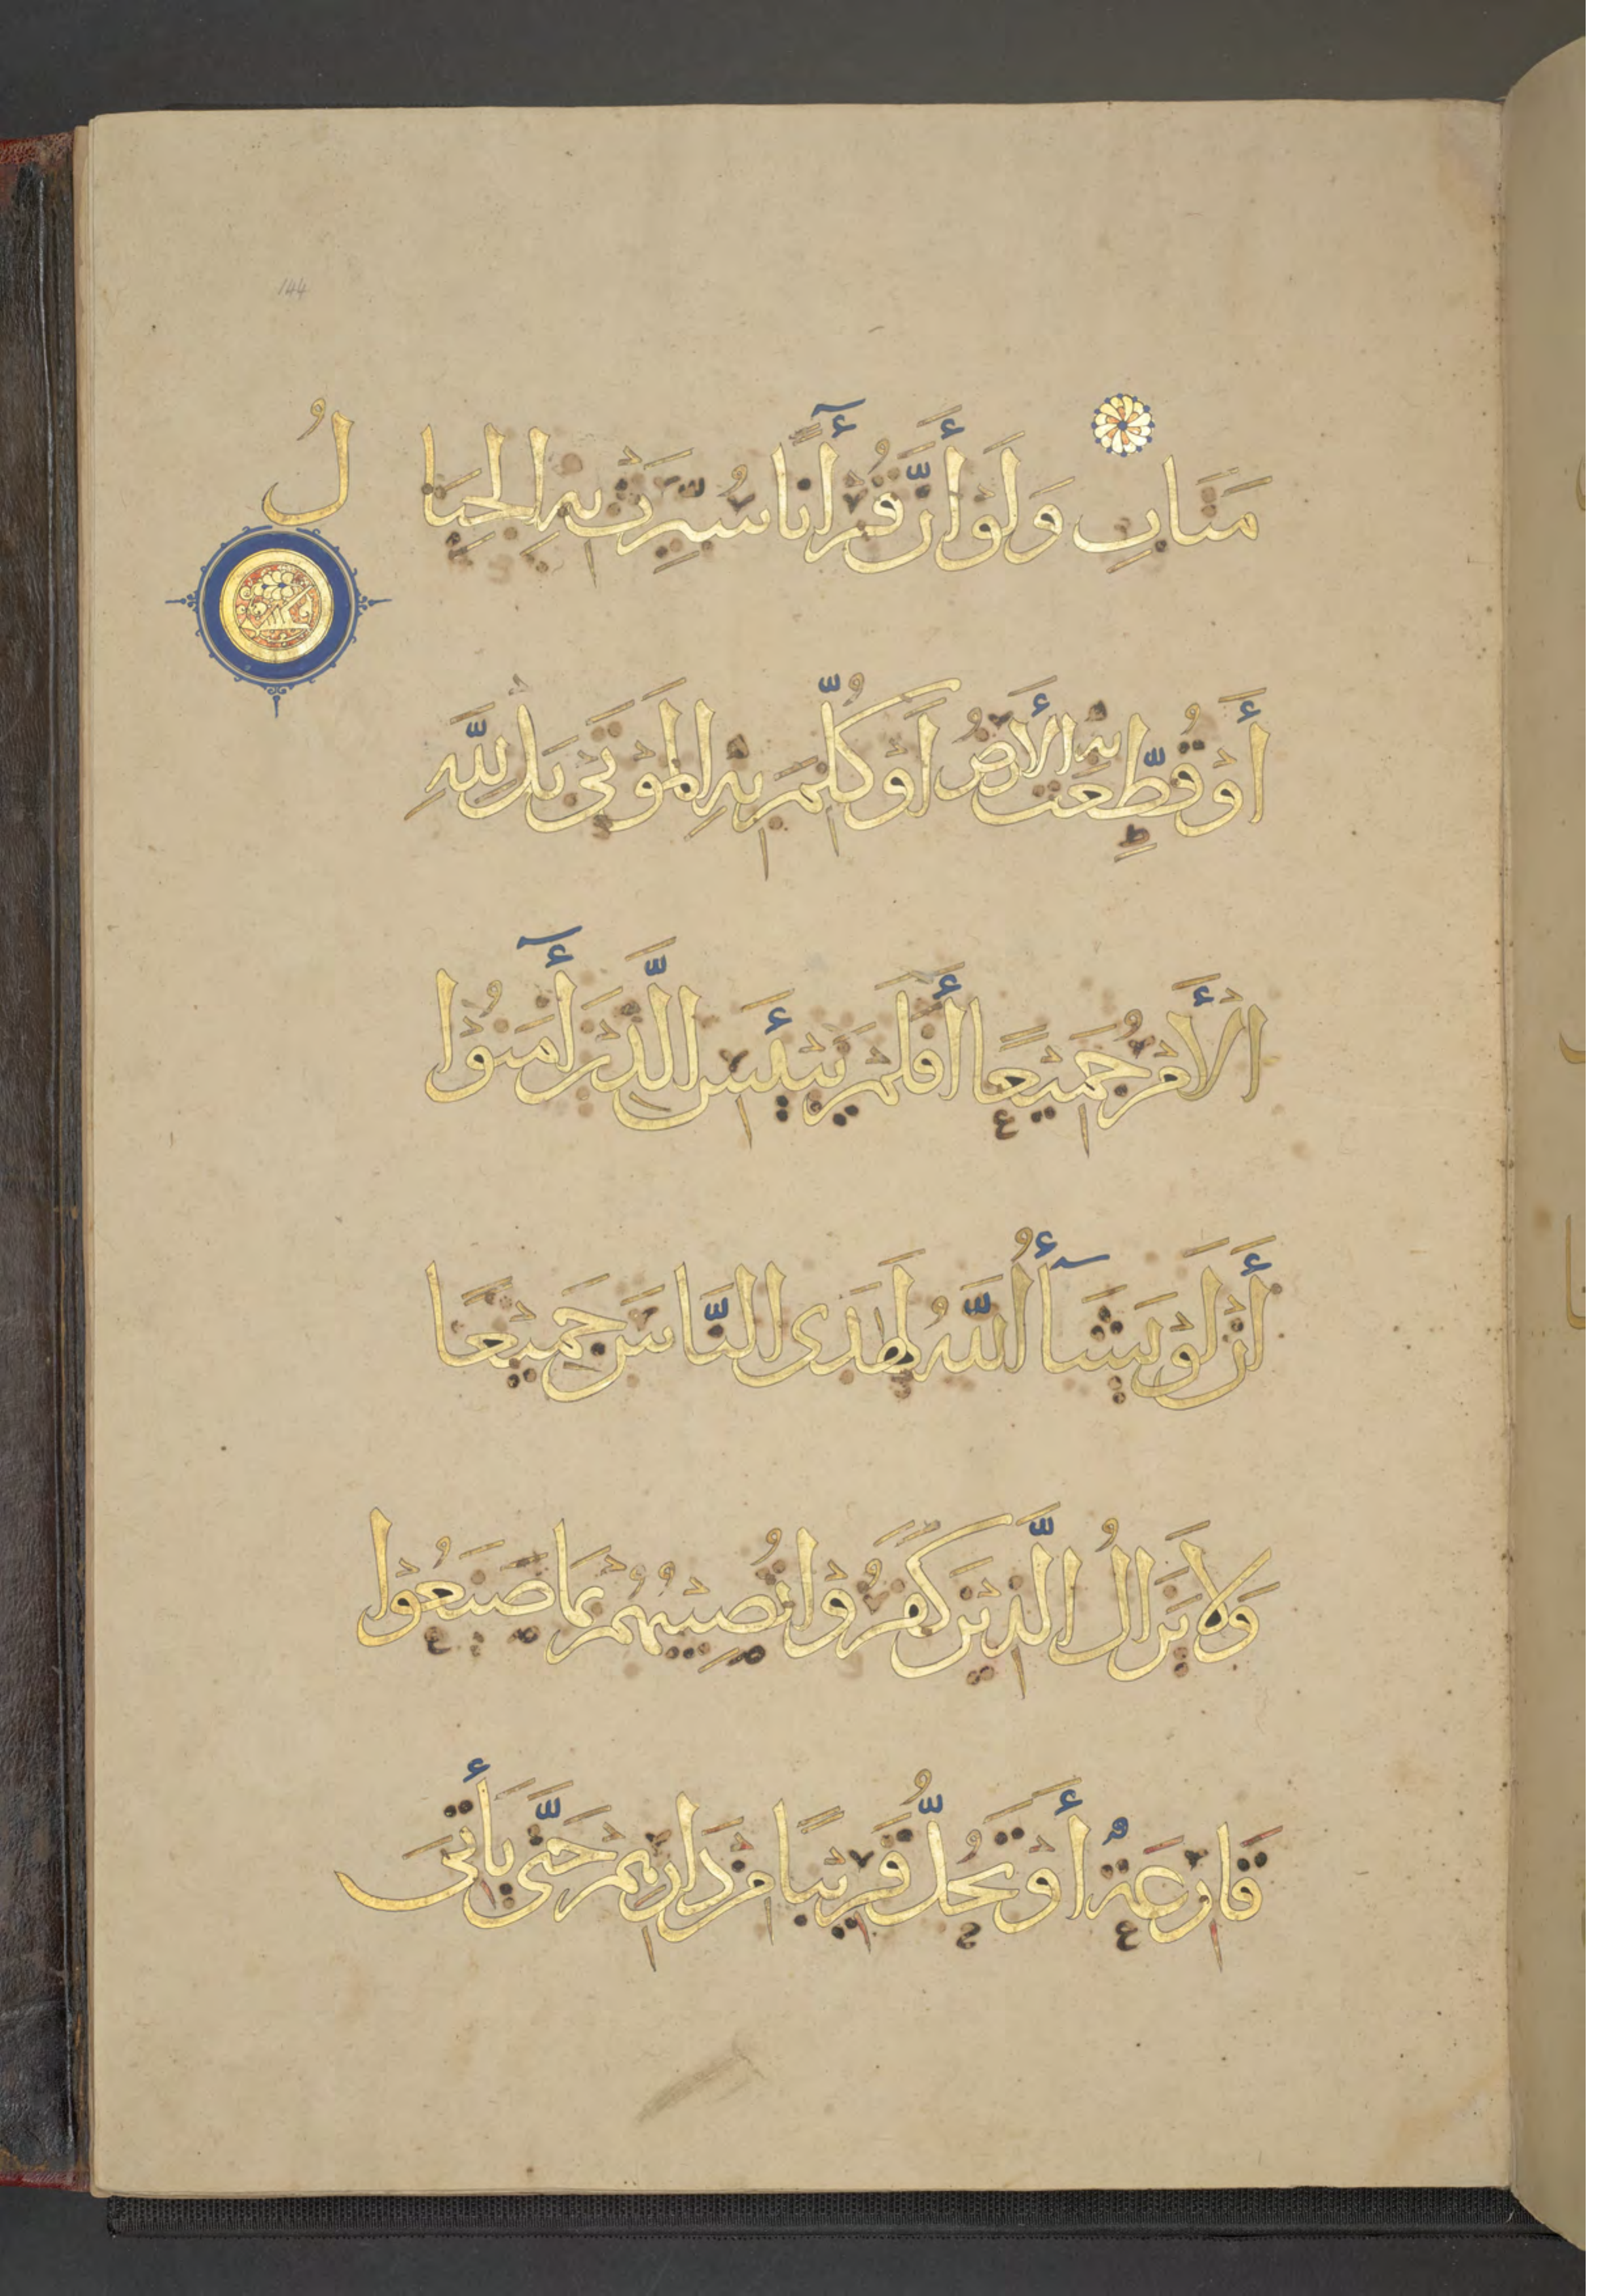 144
مَتَابِ وَلَوْ أَنَّ قُرْآنًا سُيِّرَتْ بِهِ الْجِبَالُ
أَوْ قُطِّعَتْ بِهِ الْأَرْضُ أَوْ كُلِّمَ بِهِ الْمَوْتَى بَلْ لِلَّهِ
الْأَمْرُ جَمِيْعًا أَفَلَمْ يَيْئَسِ الَّذِيْنَ أٓمَنُوْا
أَنْ لَوْ يَشَآأُ اللَّهُ لَهَدَى النَّاسَ جَمِيْعًا
وَلَا يَزَالُ الَّذِيْنَ كَفَرُوْا تُصِيْبُهُمْ بِمَا صَنَعُوْا
قَارِعَةٌ أَوْ تَحُلُّ قَرِيْبًا مِنْ دَارِهِمْ حَتَّى يَأْتِىَ